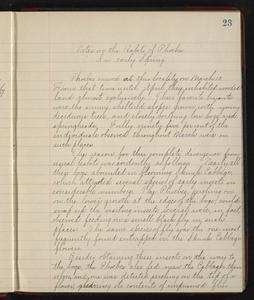 23
Notes on the Habits of Phoebe
in early Spring
Phoebes arrived at this locality on March 12
From that time until April they inhabited wooded
land almost exclusively. Their favorite haunts
were the sunny sheltered slopes grown with young
deciduous trees, and closely bordering low bogs and
springheads. Fully ninety five percent of the
individuals observed throughout March were in
such places.
The reason for this complete divergence from
usual habits was evidently as follows. Nearly all
these bogs abounded in flowering Skunk Cabbage
which attracted several species of early insects in
considerable numbers. The Phoebes, perching on
on the lower growth at the edge of the bogs, would
snap up the passing insects; several were, in fact,
observed feeding on a small black fly in such
places. The same species of fly was the one most
frequently found entrapped in the Skunk Cabbage
flowers.
Besides obtaining their insects on the way to
the bogs the Phoebes also used the Cabbage
upon, one was detected perching on the lip of a
flower, gleaning its contents of imprisoned flies.